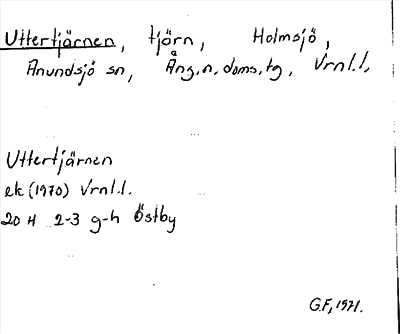 Uttertjärnen, tjärn, Holmsjö,
Anundsjö sn, Ång.n.doms.tg, Vrnl.l.
Uttertjärnen
ek (1970) Vrnl.l.
20 H 2-3 g-h Östby
G.F, 1971.